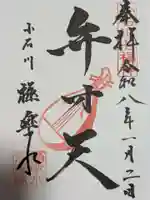 奉拝 令和八年一月二日
弁才天
小石川 極楽水